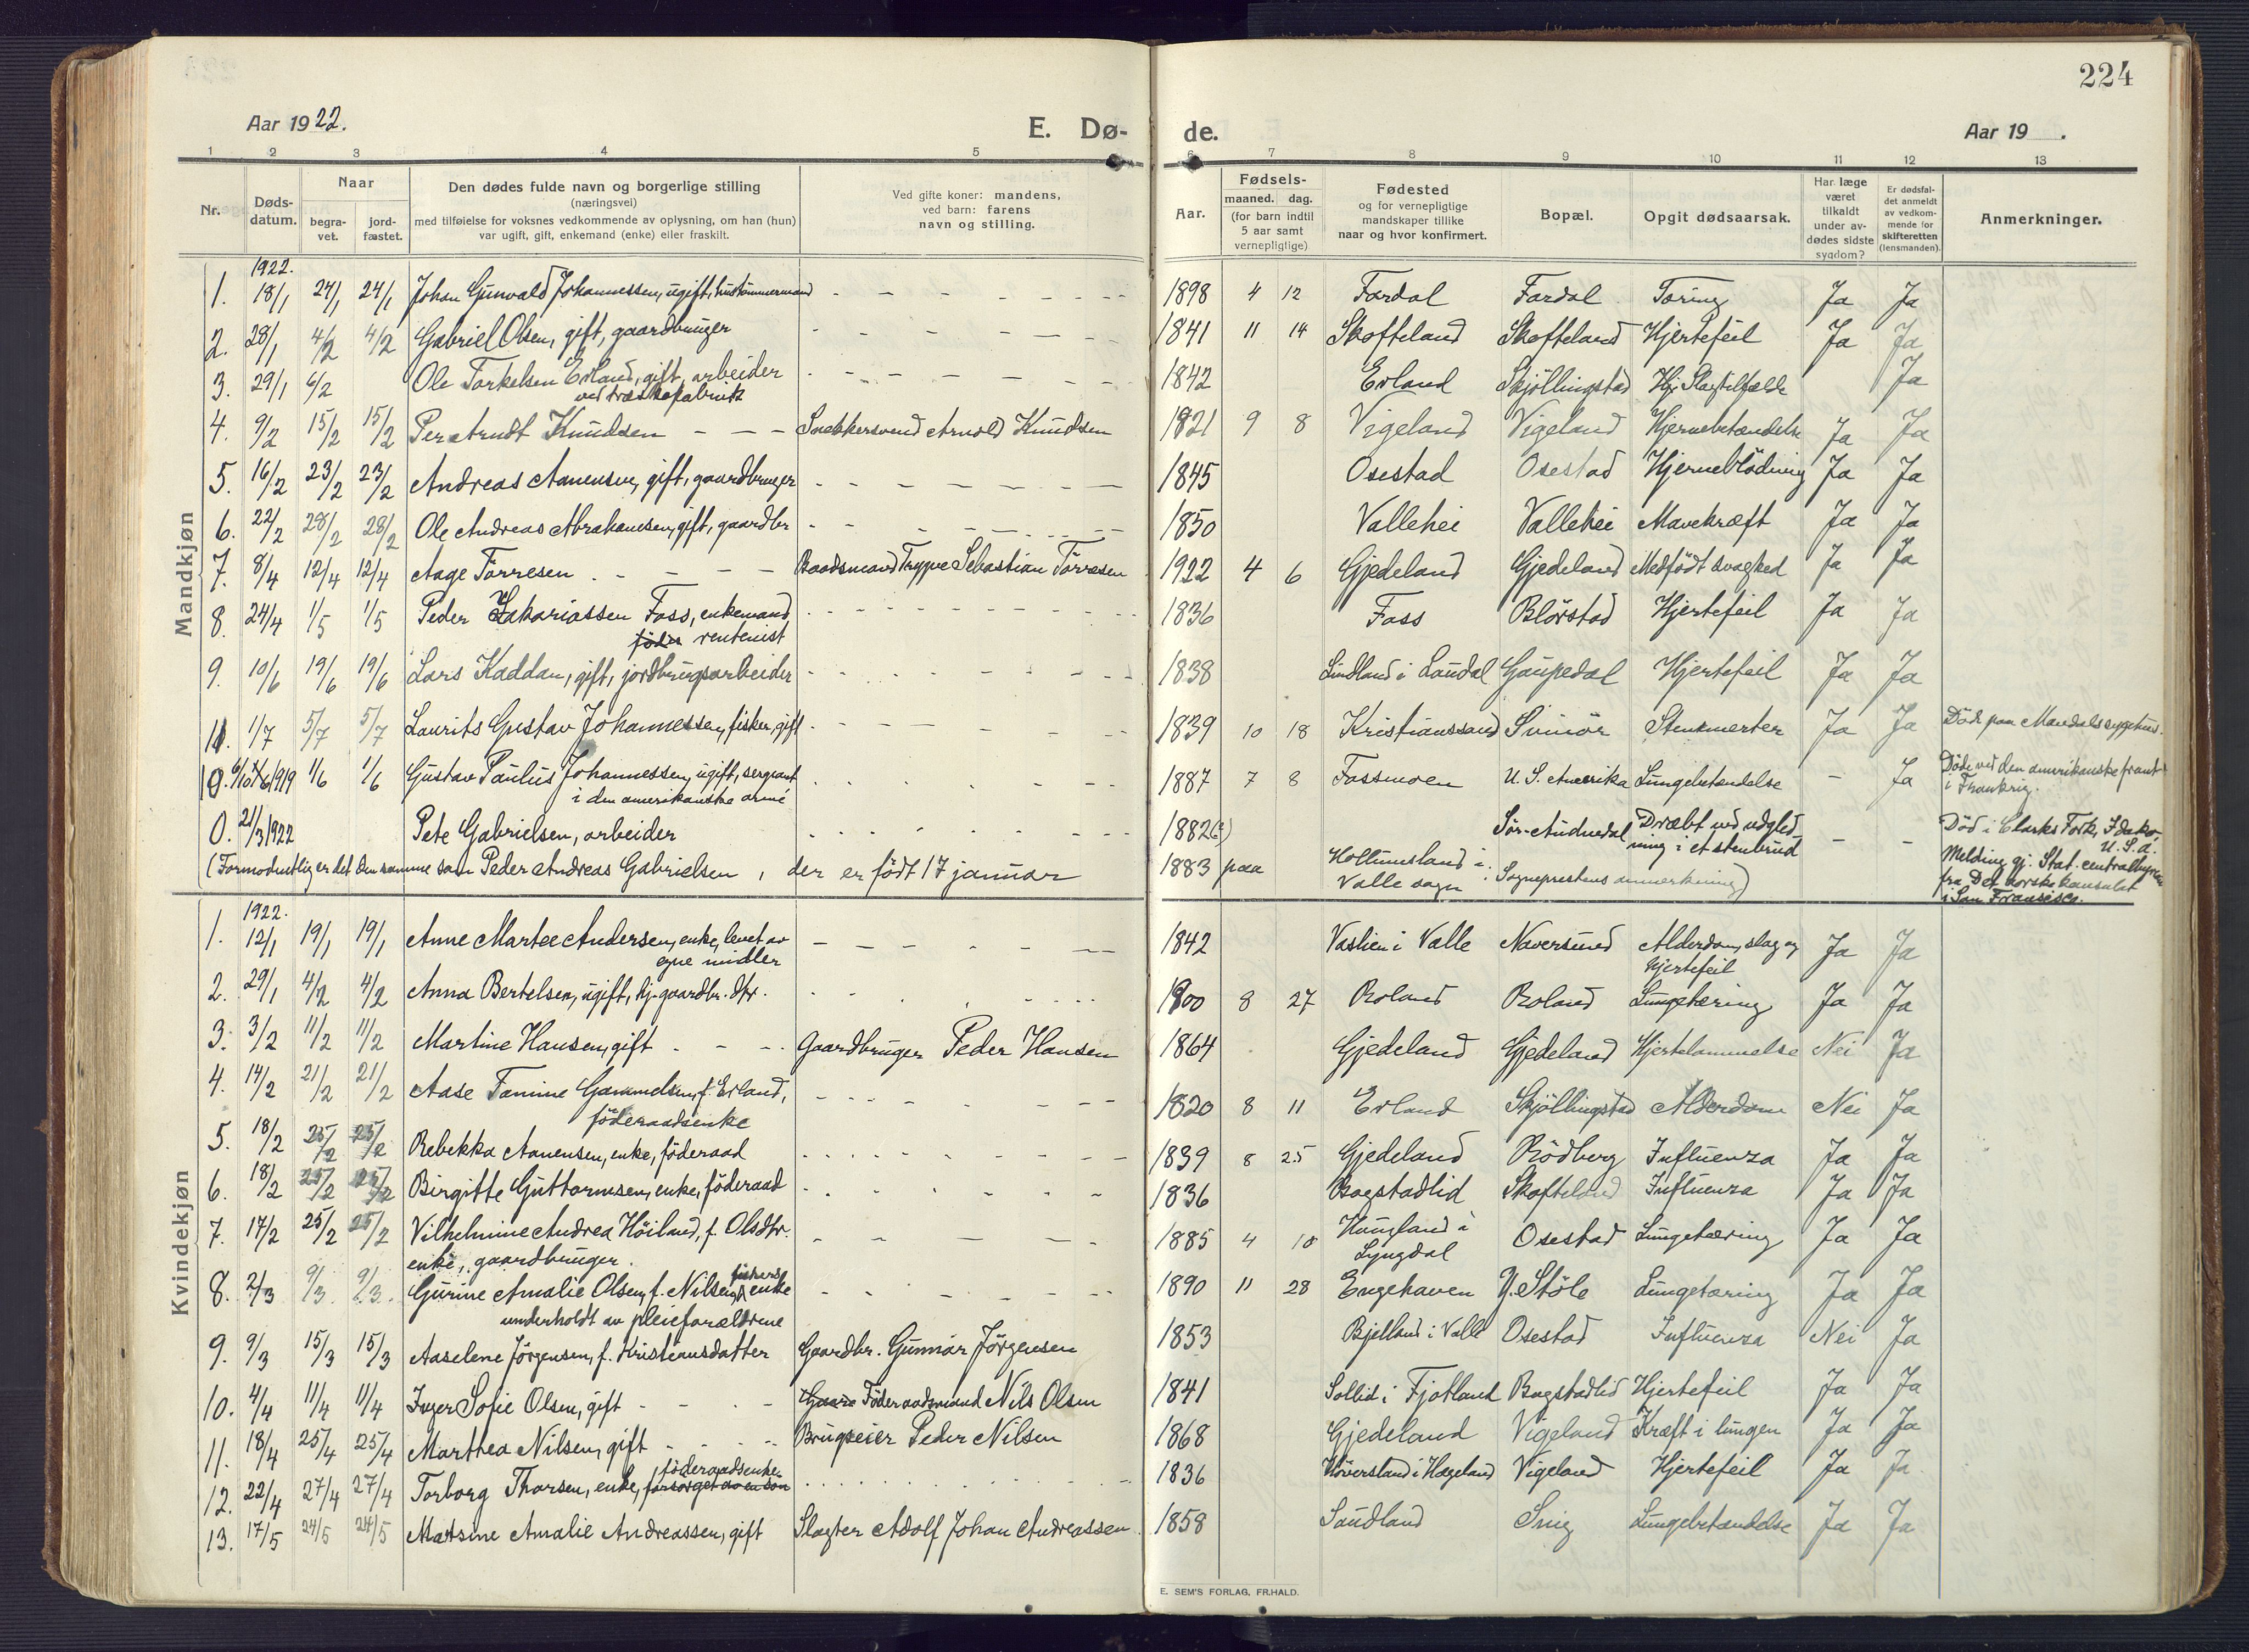 224
Aar 1922.
E. Dø-
de.
Aar 19 .
1 2 3 4 5 6 7 8 9 10 11 12 13
Nr.
Døds-
datum.
Naar
begra-
vet.
jord-
fæstet.
Den dødes fulde navn og borgerlige stilling
(næringsvei)
med tilføielse for voksnes vedkommende av oplysning, om han (hun)
var ugift, gift, enkemand (enke) eller fraskilt.
Ved gifte koner: mandens,
ved barn: farens
navn og stilling.
Aar.
Fødsels-
maaned. dag.
(for barn indtil
5 aar samt
vernepligtige)
Fødested
og for vernepligtige
mandskaper tillike
naar og hvor konfirmert.
Bopæl.
Opgit dødsaarsak.
Har læge
været
tilkaldt
under av-
dødes sidste
sygdom?
Er dødsfal-
det anmeldt
av vedkom-
mende for
skifteretten
(lensmanden).
Anmerkninger.
Mandkjøn
1922.
1. 18/1 24/1 24/1 Johan Gunvald Johannessen, ugift, hustømmermand - - - 1898 4 12 Fardal Fardal Tæring Ja Ja
2. 28/1 4/2 4/2 Gabriel Olsen, gift, gaardbruger - - - 1841 11 14 Skofteland Skofteland Hjertefeil Ja Ja
3. 29/1 6/2 Ole Torkelsen Erland, gift, arbeider - - - 1842 Erland Skjöllingstad Hj. Slagtilfælde Ja
ved træskofabrik
4. 9/2 15/2 15/2 Per Arndt Knudsen - - - Snekkersvend Arnold Knudsen 1921 9 8 Vigeland Vigeland Hjernebetændelse Ja Ja
5. 16/2 23/2 23/2 Andreas Aanensen, gift, gaardbruger - - - 1845 Osestad Osestad Hjerneblödning Ja Ja
6. 22/2 28/2 28/2 Ole Andreas Abrahamsen, gift, gaardbr - - - 1850 Vallehei Vallehei Mavekræft Ja Ja
7. 8/4 12/4 12/4 Aage Törresen - - - Baadsmand Trygve Sebastian Törresen 1922 4 6 Gjedeland Gjedeland Medfödt svaghed Ja Ja
8. 24/4 1/5 1/5 Peder Zakariassen Foss, enkemand, - - - 1836 Foss Blörstad Hjertefeil Ja Ja
föder rentenist
9. 10/6 19/6 19/6 Lars Kaddan, gift, jordbrugsarbeider - - - 1838 Lindland i Laudal Gaupedal Hjertefeil Ja Ja
11. 1/7 5/7 5/7 Laurits Gustav Johannessen, fisker, gift - - - 1839 10 18 Kristianssand Svinör Stensmerter Ja Ja Döde paa Mandals sygehus.
10. 1919 1/6 1/6 Gustav Paulus Johannessen, ugift, sergeant - - - 1887 7 8 Fossmoen U. S. Amerika Lungebetændelse - Ja Döde ved den amerikanske front
i den amerikanske armé
i Frankrig.
0. 21/3 1922 Pete Gabrielsen, arbeider - - - 1882(?) Sör-Audnedal Dræbt ved udglid- - - Död i Clarks Fork, Idaho,
ning i et stenbrud
U. S. A.
(Formodentlig er det den samme som Peder Andreas Gabrielsen, der er födt 17 januar 1883 paa Hollumsland i
Valle sogn Sogneprestens anmerkning)
Melding gj. Stat. centralbyraa
fra Det norske konsulat
i San Francisco.
Kvindekjøn
1922.
1. 12/1 19/1 19/1 Anne Martee Andersen, enke, levet av - - - 1842 Vaslien i Valle Naversund Alderdom, slag og Ja Ja
egne midler
hjertefeil
2. 29/1 4/2 4/2 Anna Bertelsen, ugift, hj. gaardbr. dtr. - - - 1900 8 27 Roland Roland Lungetæring Ja Ja
3. 3/2 11/2 11/2 Martine Hansen, gift - - - Gaardbruger Peder Hansen 1864 Gjedeland Gjedeland Hjertelammelse Nei Ja
4. 14/2 21/2 21/2 Aase Tomine Gommelsen, f. Erland, - - - 1820 8 11 Erland Skjöllingstad Alderdom Nei Ja
föderaadsenke
5. 18/2 25/2 25/2 Rebekka Aanensen, enke, föderaad - - - 1839 8 25 Gjedeland Rödberg Influenza Ja Ja
6. 18/2 25/2 25/2 Birgitte Guttormsen, enke, föderaad - - - 1836 Bogstadlid Skofteland Influenza Ja Ja
7. 17/2 25/2 25/2 Vilhelmine Andrea Höiland, f. Olsdtr. - - - 1885 4 10 Haugland i Osestad Lungetæring Ja Ja
enke, gaardbruger.
Lyngdal
8. 2/3 9/3 9/3 Gurine Amalie Olsen, f. Nilsen, fiskers enke - - - 1890 11 28 Engehaven Y. Stöle Lungetæring Ja Ja
underholdt av pleieforældrene
9. 9/3 15/3 15/3 Aaselene Jörgensen, f. Kristiansdatter Gaardbr. Gunnar Jörgensen 1853 Bjelland i Valle Osestad Influenza Nei Ja
10. 4/4 11/4 11/4 Inger Sofie Olsen, gift - - - Gaard Föderaadsmand Nils Olsen 1841 Sollid i Fjotland Bogstadlid Hjertefeil Ja Ja
11. 18/4 25/4 25/4 Marthea Nilsen, gift - - - Brugseier Peder Nilsen 1868 Gjedeland Vigeland Kræft i lungen Ja Ja
12. 22/4 27/4 27/4 Torborg Thorsen, enke, forsörget av en sön föderaadsenke - - - 1836 Höversland i Hægeland Vigeland Hjertefeil Ja Ja
13. 17/5 24/5 24/5 Matsine Amalie Andreassen, gift Slagter Adolf Johan Andreassen 1858 Saudland Snig Lungebetændelse Ja Ja
E. SEM'S FORLAG, FR.HALD.